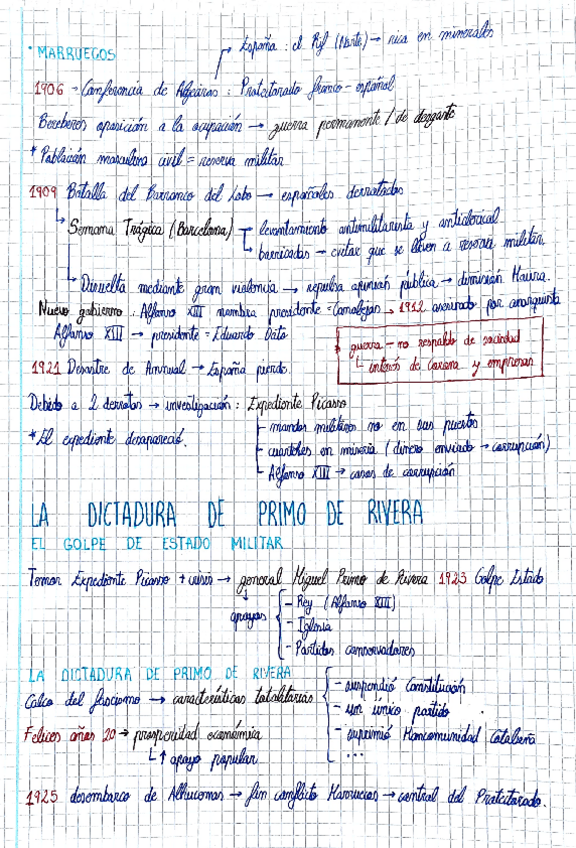 España: el Rif (Norte) → rica en minerales
* MARRUECOS
1906 - Conferencia de Algeciras: Protectorado franco-español
Bereberes oposición a la ocupación → guerra permanente / de desgaste
* Población masculina civil = reserva militar
1909 Batalla del Barranco del Lobo → españoles derrotados
Semana Trágica (Barcelona) levantamiento antimilitarista y anticlerical
barricadas → evitar que se lleven a reserva militar
Disuelta mediante gran violencia → repulsa opinión pública → dimisión Maura.
Nuevo gobierno: Alfonso XIII nombra presidente = Canalejas → 1912 asesinado por anarquista
Alfonso XIII → presidente = Eduardo Dato
* guerra - no respaldo de sociedad
interés de Corona y empresas
1921 Desastre de Annual → España pierde.
Debido a 2 derrotas → investigación: Expediente Picasso
- mandos militares no en sus puestos
* El expediente desapareció.
- cuarteles en miseria (dinero enviado → corrupción)
- Alfonso XIII → casos de corrupción
LA DICTADURA DE PRIMO DE RIVERA
EL GOLPE DE ESTADO MILITAR
Temor Expediente Picasso + crisis → general Miguel Primo de Rivera 1923 Golpe Estado
apoyos
- Rey (Alfonso XIII)
- Iglesia
- Partidos conservadores
LA DICTADURA DE PRIMO DE RIVERA
- suspendió Constitución
Calco del fascismo → características totalitarias
- un único partido
Felices años 20 → prosperidad económica
- suprimió Mancomunidad Catalana
↑ apoyo popular
- ...
1925 desembarco de Alhucemas → fin conflicto Marruecos → control del Protectorado.